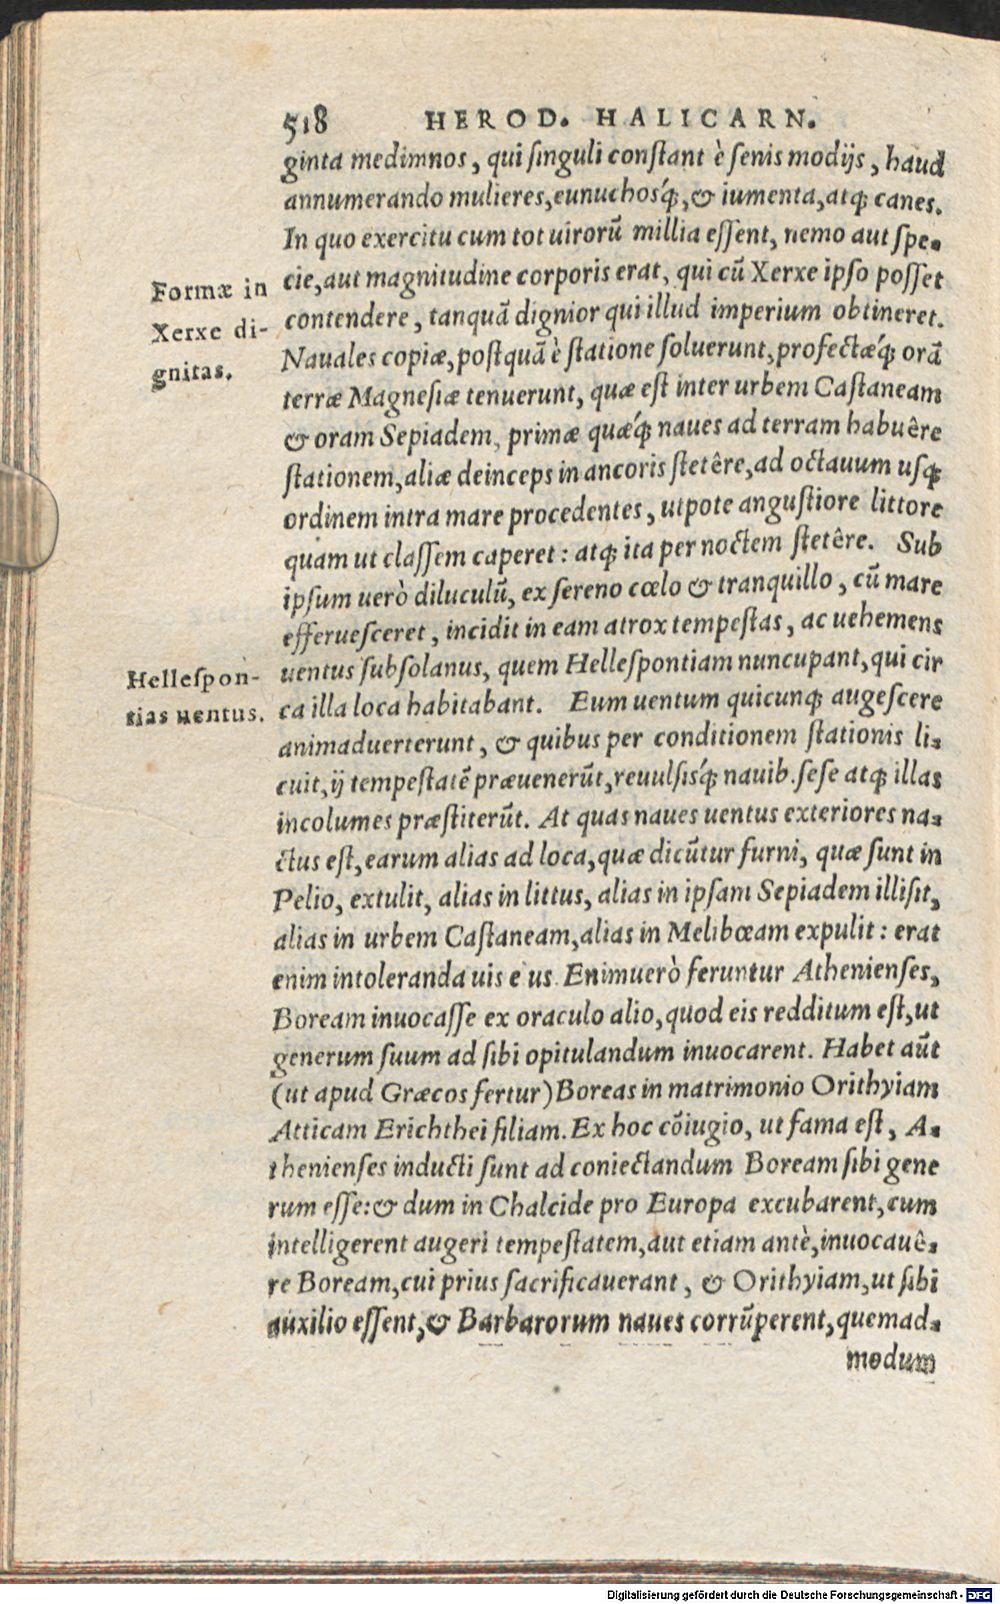 518 HEROD. HALICARN.
ginta medimnos, qui ſinguli conſtant è ſenis modijs, haud
annumerando mulieres, eunuchosq́;, & iumenta, atq; canes.
In quo exercitu cum tot uirorũ millia eſſent, nemo aut ſpe-
cie, aut magnitudine corporis erat, qui cũ Xerxe ipſo poſſet
Formæ in
Xerxe di-
gnitas.
contendere, tanquã dignior qui illud imperium obtineret.
Nauales copiæ, poſtquã è ſtatione ſoluerunt, profectæq́; orã
terræ Magneſiæ tenuerunt, quæ eſt inter urbem Caſtaneam
& oram Sepiadem, primæ quæq́; naues ad terram habuêre
ſtationem, aliæ deinceps in ancoris ſtetêre, ad octauum uſq;
ordinem intra mare procedentes, utpote anguſtiore littore
quam ut claſſem caperet: atq; ita per noctem ſtetêre. Sub
ipſum uerò diluculũ, ex ſereno cœlo & tranquillo, cũ mare
efferueſceret, incidit in eam atrox tempeſtas, ac uehemens
uentus ſubſolanus, quem Helleſpontiam nuncupant, qui cir
Helleſpon-
tias uentus.
ca illa loca habitabant. Eum uentum quicunq; augeſcere
animaduerterunt, & quibus per conditionem ſtationis li-
cuit, ij tempeſtatẽ præuenerũt, reuulſisq́; nauib. ſeſe atq; illas
incolumes præſtiterũt. At quas naues uentus exteriores na-
ctus eſt, earum alias ad loca, quæ dicũtur furni, quæ ſunt in
Pelio, extulit, alias in littus, alias in ipſam Sepiadem illiſit,
alias in urbem Caſtaneam, alias in Melibœam expulit: erat
enim intoleranda uis e us. Enimuerò feruntur Athenienſes,
Boream inuocaſſe ex oraculo alio, quod eis redditum eſt, ut
generum ſuum ad ſibi opitulandum inuocarent. Habet aũt
(ut apud Græcos fertur) Boreas in matrimonio Orithyiam
Atticam Erichthei filiam. Ex hoc cõiugio, ut fama eſt, A-
thenienſes inducti ſunt ad coniectandum Boream ſibi gene
rum eſſe: & dum in Chalcide pro Europa excubarent, cum
intelligerent augeri tempeſtatem, aut etiam antè, inuocauê-
re Boream, cui prius ſacrificauerant, & Orithyiam, ut ſibi
auxilio eſſent, & Barbarorum naues corrũperent, quemad-
modum
Digitalisierung gefördert durch die Deutsche Forschungsgemeinschaft - DFG